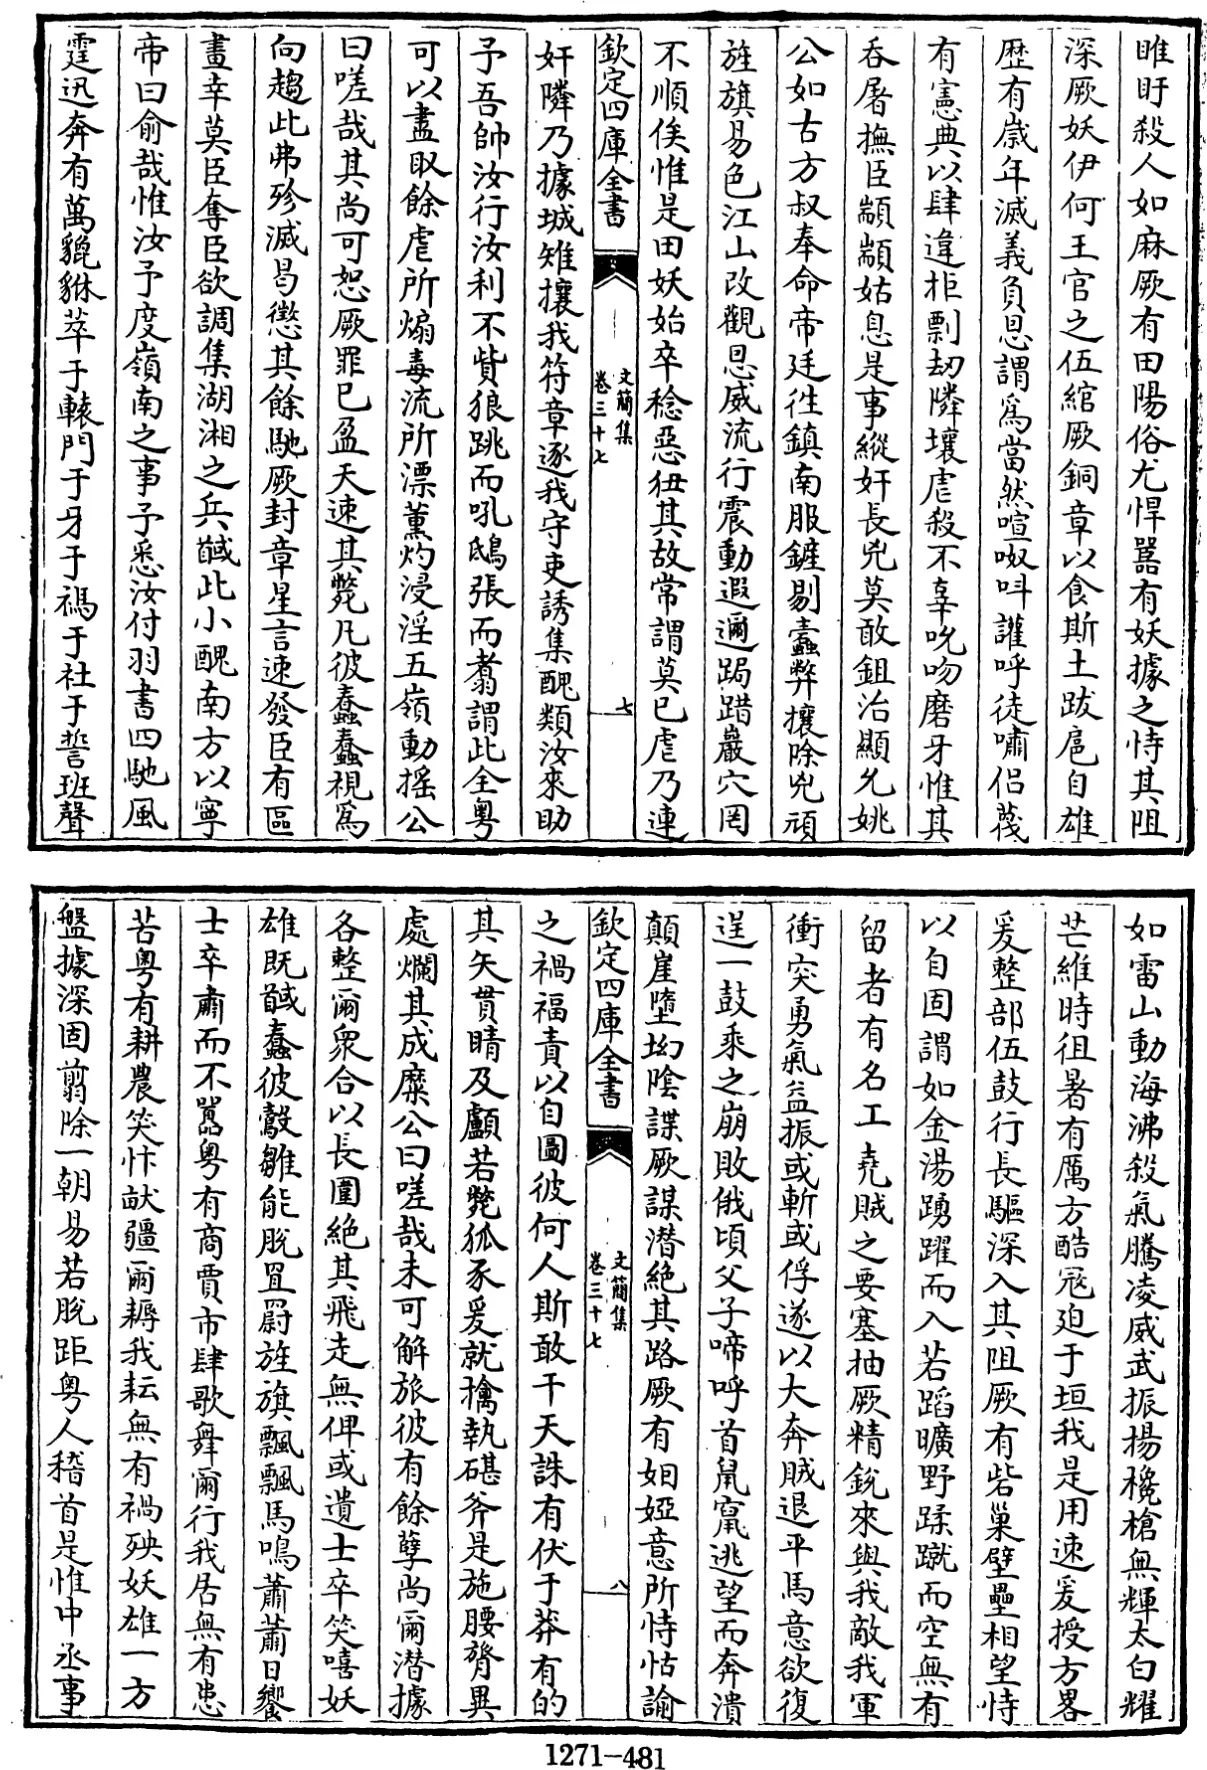 睢盱殺人如麻厥有田陽俗尤悍嚚有妖據之恃其阻
深厥妖伊何王官之伍綰厥銅章以食斯土跋扈自雄
歴有嵗年滅義負恩謂爲當然喧呶叫讙呼徒嘯侣蔑
有憲典以肆違拒剽刼隣壤虐殺不辜吮吻磨牙惟其
吞屠撫臣顓顓姑息是事縱奸長兇莫敢鉏治顯允姚
公如古方叔奉命帝廷徃鎮南服鏟剔蠧弊攘除兇頑
旌旗易色江山改觀恩威流行震動遐邇跼蹐巖穴罔
不順俟惟是田妖始卒稔惡狃其故常謂莫已虐乃連
欽定四庫全書
文簡集
卷三十七
七
奸隣乃據城雉攘我符章逐我守吏誘集醜類汝來助
予吾帥汝行汝利不貲狼跳而吼鴟張而翥謂此全粤
可以盡取餘虐所煽毒流所漂薰灼浸淫五嶺動摇公
曰嗟哉其尚可恕厥罪已盈天速其斃凡彼蠢蠢視爲
向趨此弗殄滅曷懲其餘馳厥封章星言速發臣有區
畫幸莫臣奪臣欲調集湖湘之兵馘此小醜南方以寧
帝曰俞哉惟汝予度嶺南之事予悉汝付羽書四馳風
霆迅奔有萬貔貅萃于轅門于牙于禡于社于誓班聲
如雷山動海沸殺氣騰凌威武振揚欃槍無輝太白耀
芒維時徂暑有厲方酷冦廹于垣我是用速爰授方畧
爰整部伍鼓行長驅深入其阻厥有砦巢壁壘相望恃
以自固謂如金湯踴躍而入若蹈曠野蹂蹴而空無有
留者有名工堯賊之要塞抽厥精銳來與我敵我軍
衝突勇氣益振或斬或俘遂以大奔賊退平馬意欲復
逞一鼓乘之崩敗俄頃父子啼呼首鼠竄逃望而奔潰
顛崖墮坳陰諜厥謀潜絶其路厥有姻婭意所恃怙諭
欽定四庫全書
文簡集
卷三十七
八
之禍福責以自圖彼何人斯敢干天誅有伏于莽有的
其矢貫睛及顱若斃狐豕爰就擒執碪斧是施腰膂異
處爛其成糜公曰嗟哉未可解旅彼有餘孽尚爾潜據
各整爾衆合以長圍絶其飛走無俾或遺士卒笑嘻妖
雄既馘蠢彼鷇雛能脱罝罻旌旗飄飄馬鳴蕭蕭日饗
士卒肅而不嚻粤有商賈市肆歌舞爾行我居無有患
苦粤有耕農笑忭畎疆爾耨我耘無有禍殃妖雄一方
盤據深固翦除一朝易若脱距粤人稽首是惟中丞事
1271-481